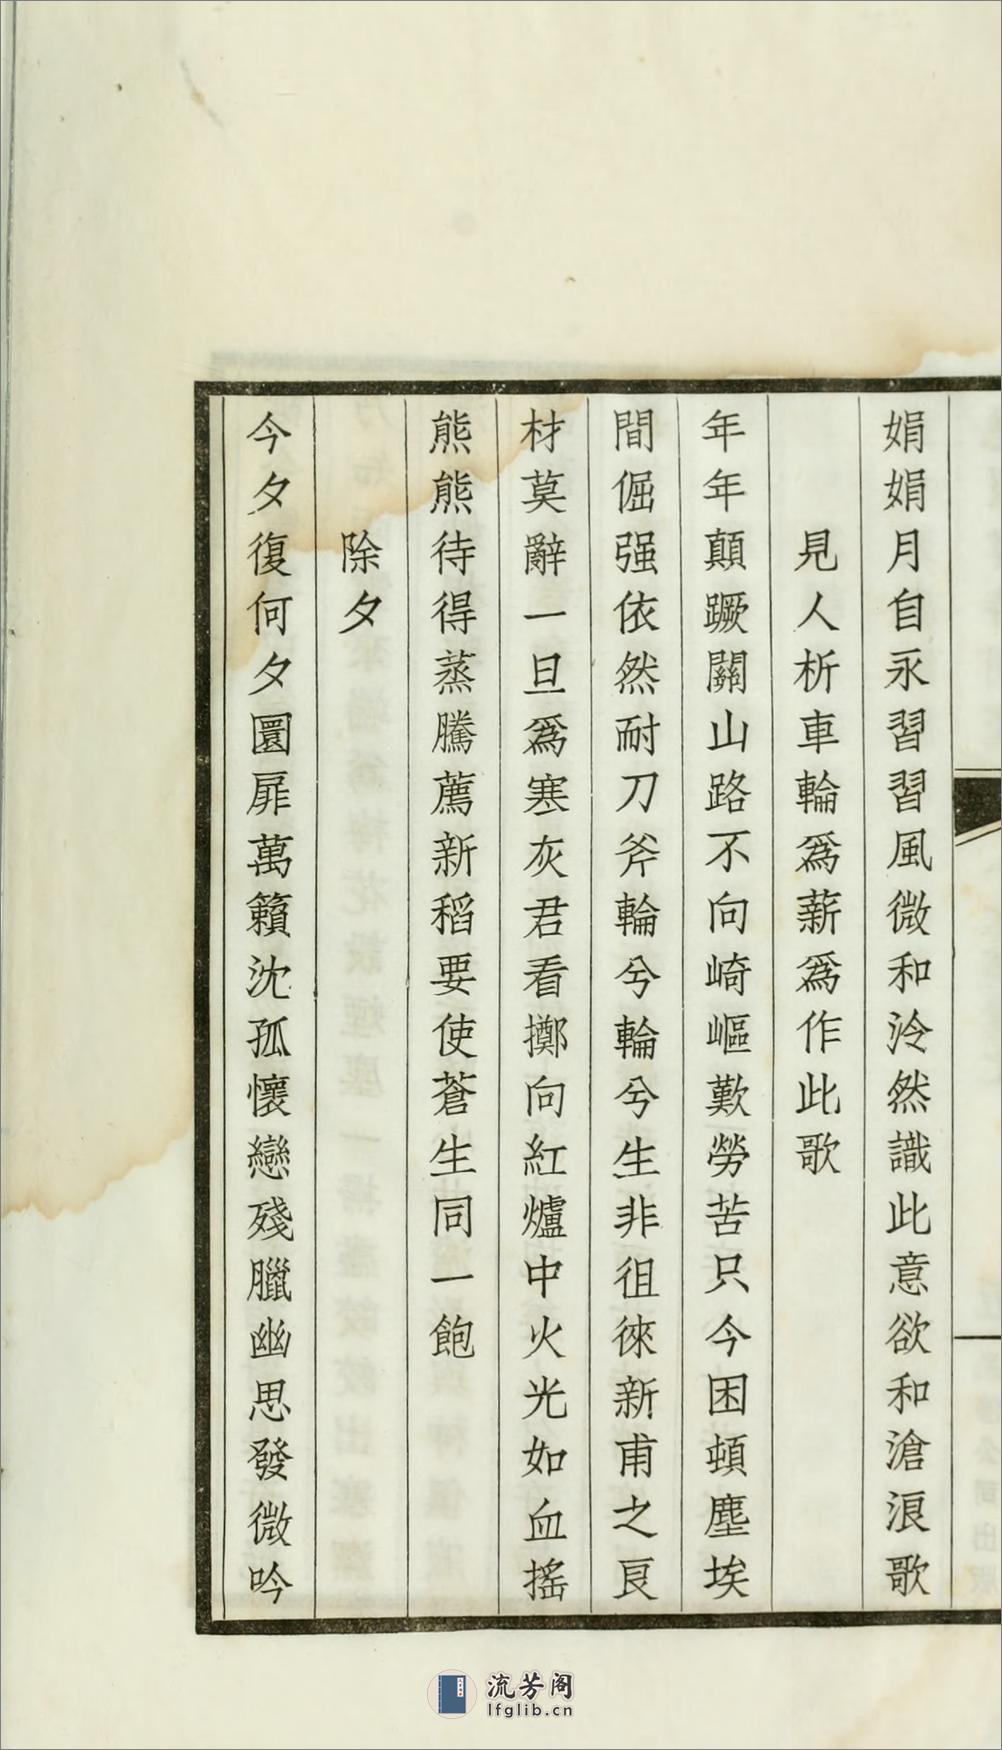 娟娟月自永習習風微和泠然識此意欲和滄浪歌
見人析車輪爲薪爲作此歌
年年顛蹶關山路不向崎嶇歎勞苦只今困頓塵埃
間倔强依然耐刀斧輪兮輪兮生非徂徠新甫之良
材莫辭一旦爲寒灰君看擲向紅爐中火光如血搖
熊熊待得蒸騰薦新稻要使蒼生同一飽
除夕
今夕復何夕圜扉萬籟沈孤懷戀殘臘幽思發微吟
流芳阁
lfglib.cn